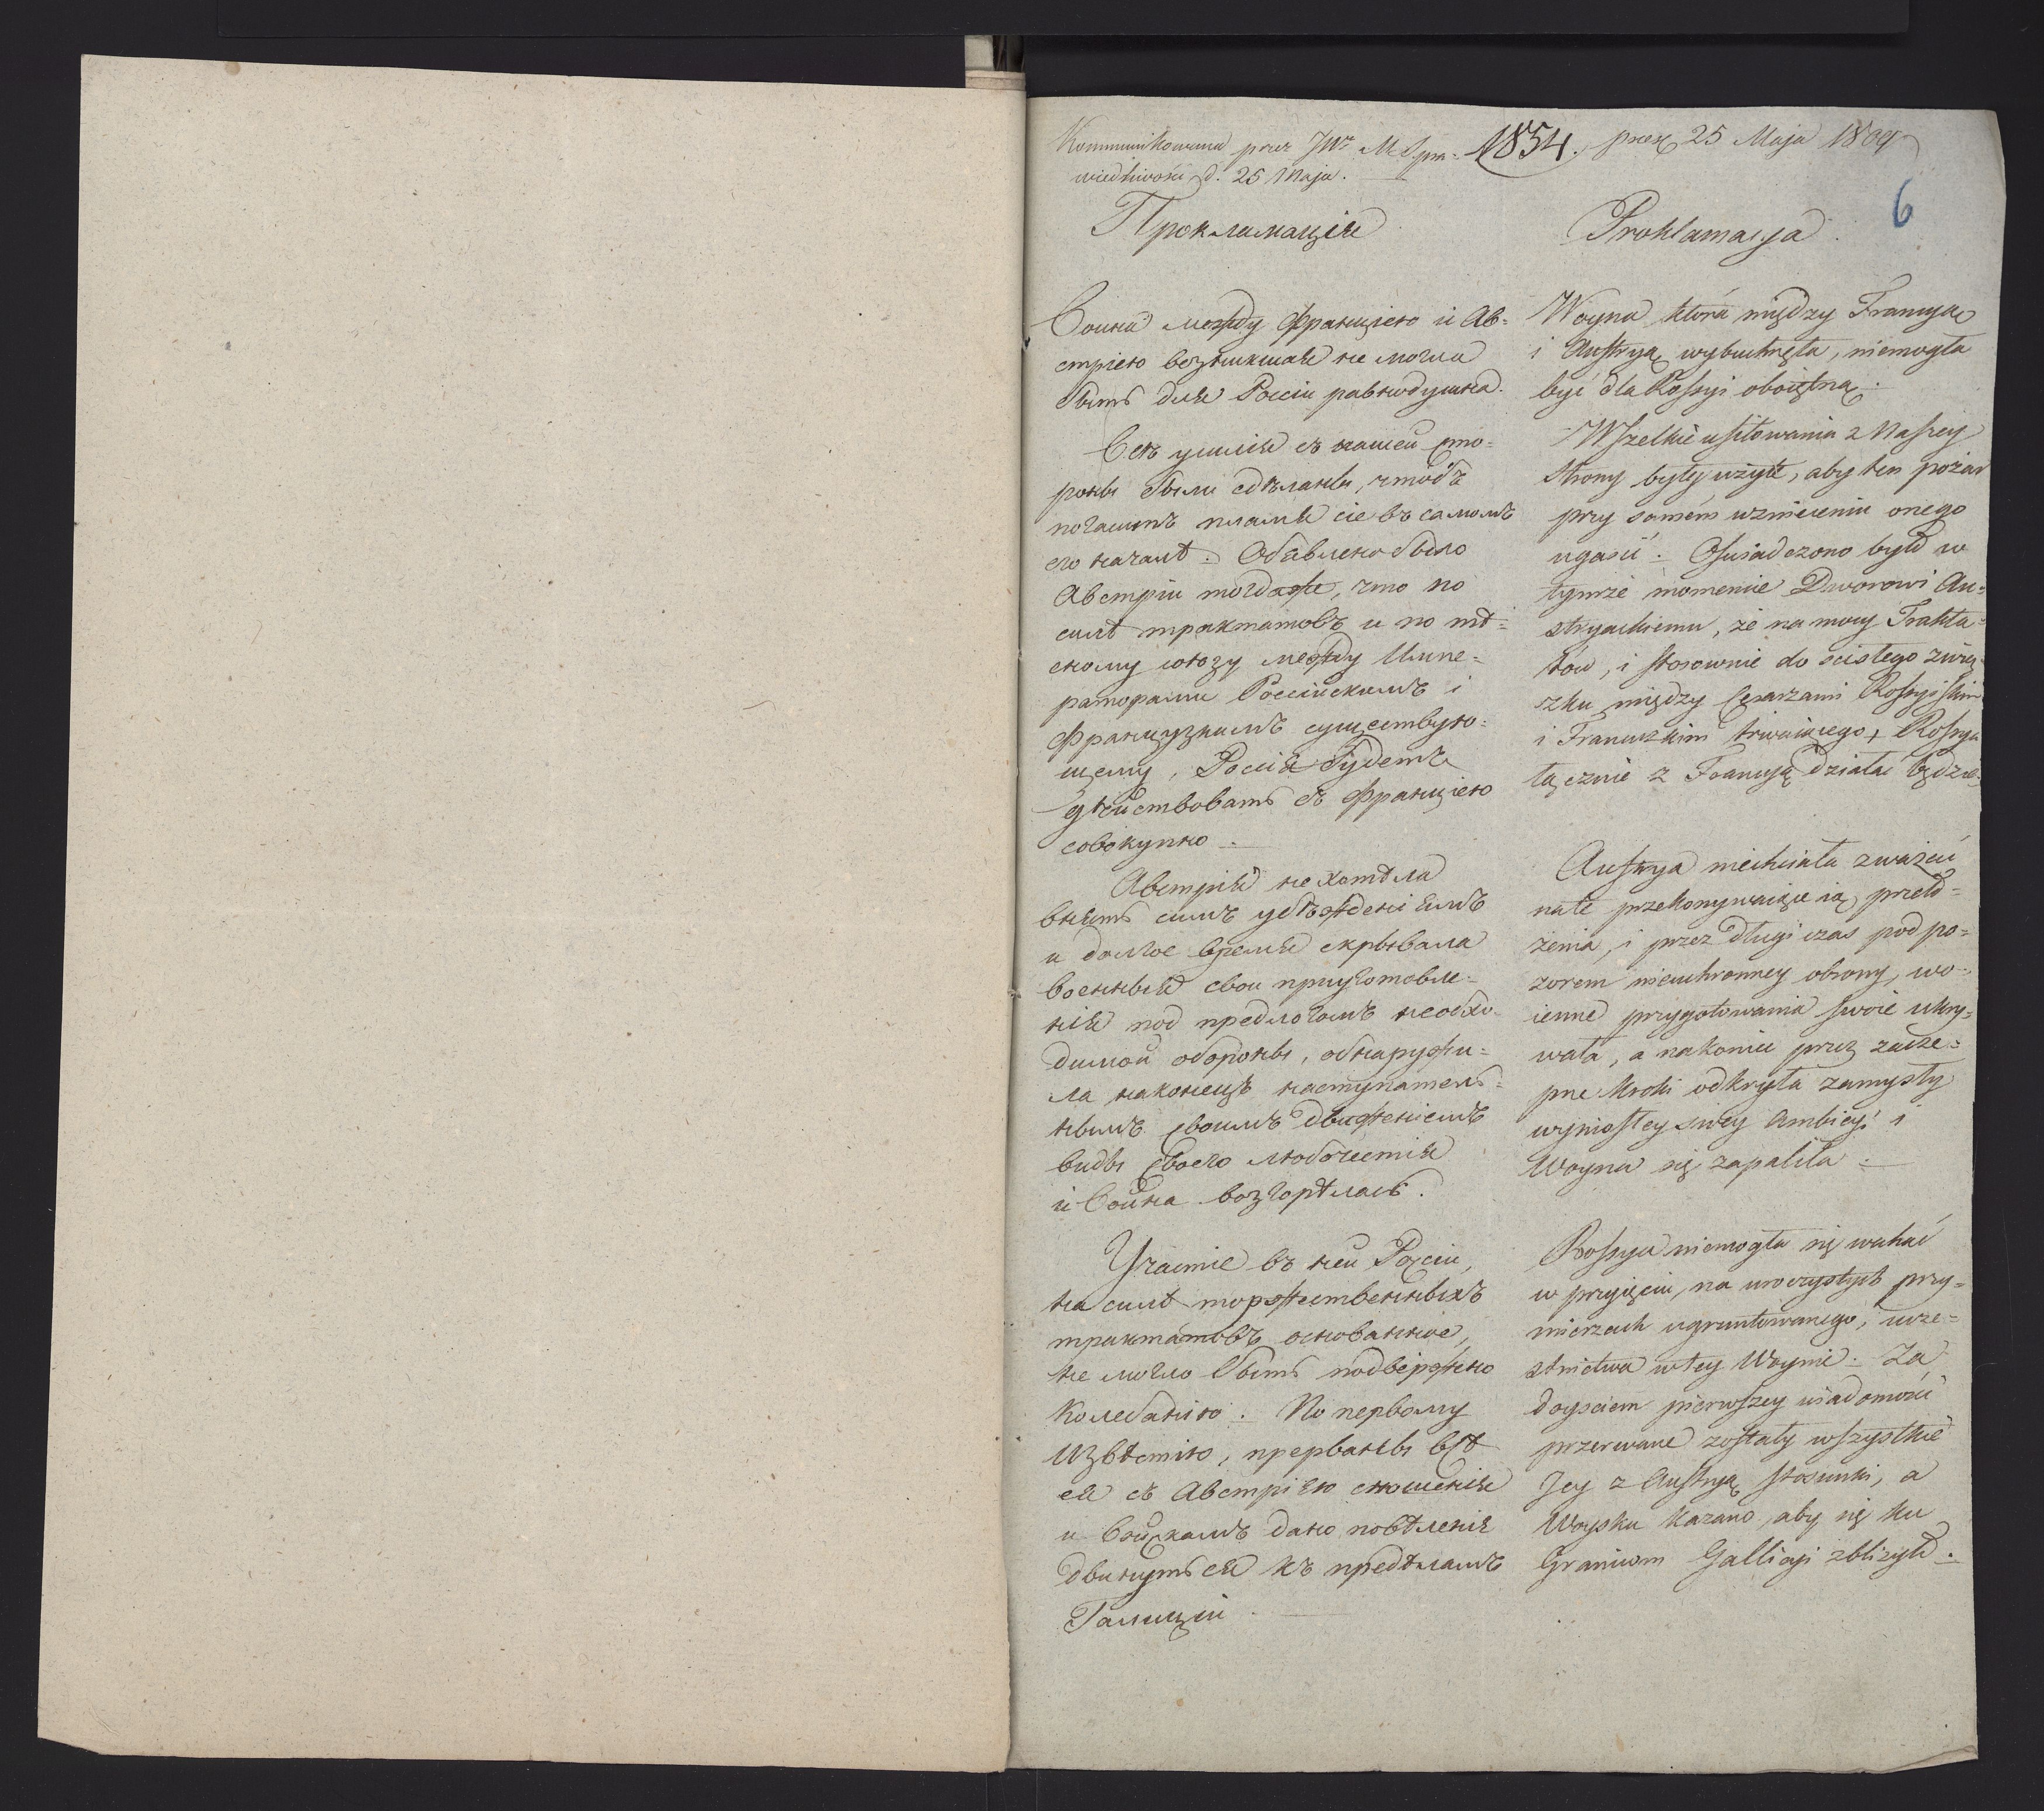 Kommunikowana przez JWo M Spra=
wiedliwości d. 25 Maja.
1854. prez 25 Maja 1809
6
Прокламація
Воина между Франціею и Ав=
стріею возникшая не могла
быть для Россіи равнодушна.
Всѣ усилія съ нашеи сто=
роны были сдѣланы, чтобъ
погасить пламя сіе въ самомъ
его началѣ. Объявлено было
Австріи тогдаже, что по
силѣ трактатовъ и по тѣ=
сному союзу между Импе=
раторами Россіискимъ і
Французкимъ существую=
щему, Россія будетъ
дѣиствовать съ Франціею
совокупно.
Австрія не хотѣла
внять симъ убѣжденіямъ
и долгое время скрывала
военныя свои приуготовле=
нія под предлогомъ необхо=
димой обороны, обнаружи=
ла наконецъ наступатель=
нымъ своимъ движеніемъ
виды своего любочестія
и Война возгорѣлась.
Участіе въ неи Россіи,
на силѣ торжественныхъ
трактатовъ основанное,
не могло быть подвержено
колебанію. По первому
извѣстію, прерваны всѣ
ея съ Австріею сношенія
и Войскамъ дано повѣленія
двинуться къ предѣламъ
Галиціи.
Proklamacya.
Woyna która między Francyą
i Austryą wybuchnęła, niemogła
być dla Rossyi oboiętną.
Wszelkie usiłowania z Naszey
Strony były użyte, aby ten pożar
przy samém wznieceniu onego
ugasić. Oświadczono było w
tymże momencie Dworowi Au=
stryackiemu, że na mocy Trakta=
tów, i stosownie do scisłego związ=
zku między Cesarzami Rossyiskim
i Francuzkim trwaiącego, Rossya
łącznie z Francyą działać będzie.
Austrya niechciała zważać
na te przekonywaiące ią przeło=
żenia, i przez długi czas pod po=
zorem nieuchronney obrony, wo=
ienne przygotowania swoie ukry=
wała, a nakoniec przez zacze=
pne kroki odkryła zamysły
wyniosłey swey Ambicyi i
Woyna się zapaliła.
Rossya niemogła się wahać
w przyięciu, na uroczystych przy=
mierzach ugruntowanego, ucze=
stnictwa w tey Woynie. Za
doysciem pierwszey wiadomości
przerwane zostały wszystkie
Jey z Austryą stosunki, a
Woysku kazano, aby się ku
Granicom Gallicyi zbliżyło.